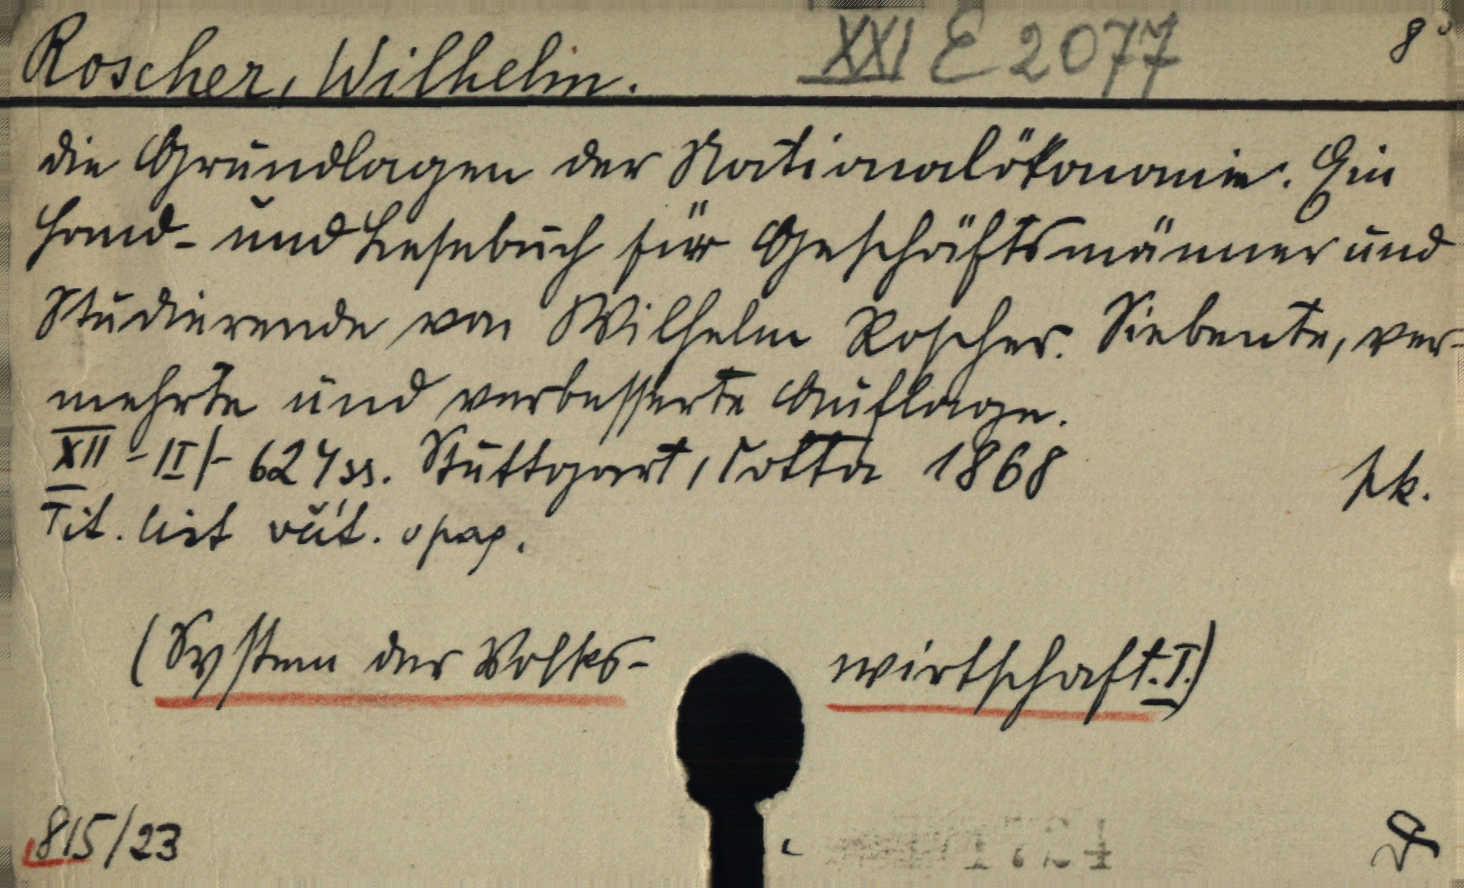 Roscher, Wilhelm. XXI E 2077 8°
die Grundlagen der Nationalökonomie. Ein
Hand- und Lesebuch für Geschäftsmänner und
Studierende von Wilhelm Roscher. Siebente, ver-
mehrte und verbesserte Auflage.
XII -II/- 627 ss. Stuttgart, Cotta 1868 pk.
Tit. list
(System der Volks- wirtschaft. I.)
815/23